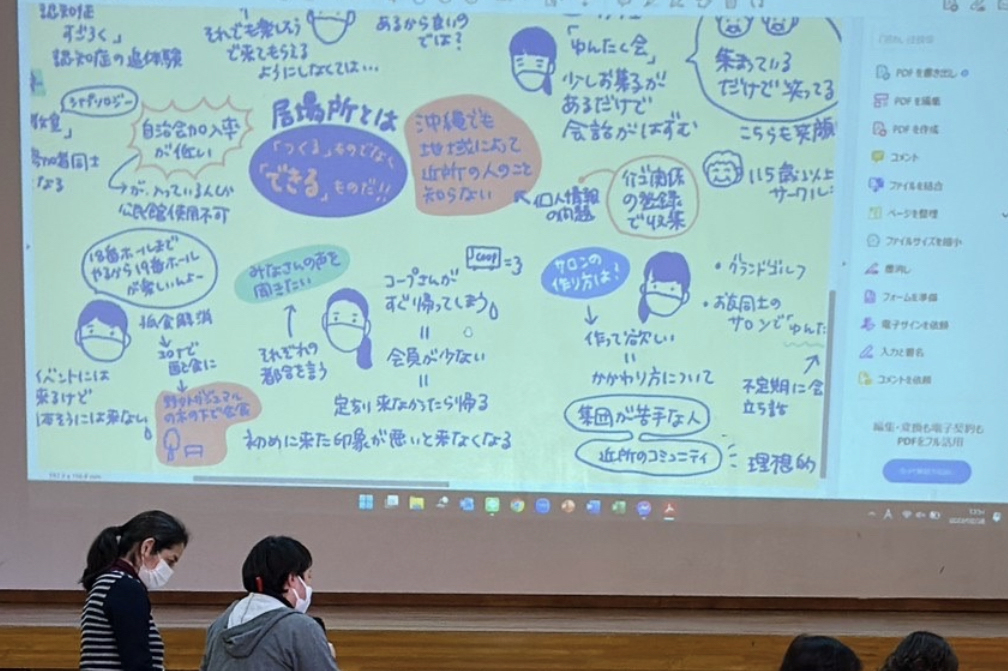 認知症
すごろく」
認知症の追体験
それでも楽しそう
で来てもらえる
ようにしなくては…
あるから良いの
では？
「ゆんたく会」
少しお菓子が
あるだけで
会話がはずむ
集まっている
だけで笑ってる
こちらも笑顔
115歳以上
サークル
教室」
参加者同士
なる
自治会加入率
が低い
が、入っている人しか
公民館使用不可
居場所とは
「つくる」ものでなく
「できる」ものだ!!
沖縄でも
地域によって
近所の人のこと
知らない
個人情報
の問題
介護関係
の登録
で収集
18番ホールまで
やるから19番ホール
が楽しいんよー
孤食解消
イベントには
来るけど
野外ガジュマル
の木の下で会食
みなさんの声を
聞きたい
それぞれの
都合を言う
COOP =3
コープさんが
すぐ帰ってしまう
=
会員が少ない
=
定刻来なかったら帰る
初めに来た印象が悪いと来なくなる
サロンの
作り方は？
作って欲しい
=
かかわり方について
集団が苦手な人
近所のコミュニティ
理想的
・グランドゴルフ
・お友同士の
サロンで「ゆんた
不定期に会
立ち話
PDF を書き出し
PDF を編集
PDF を作成
コメント
ファイルを結合
ページを整理
ファイルサイズを縮小
墨消し
フォームを準備
電子サインを依頼
入力と署名
コメントを依頼
編集・変換も電子契約も
PDFをフル活用